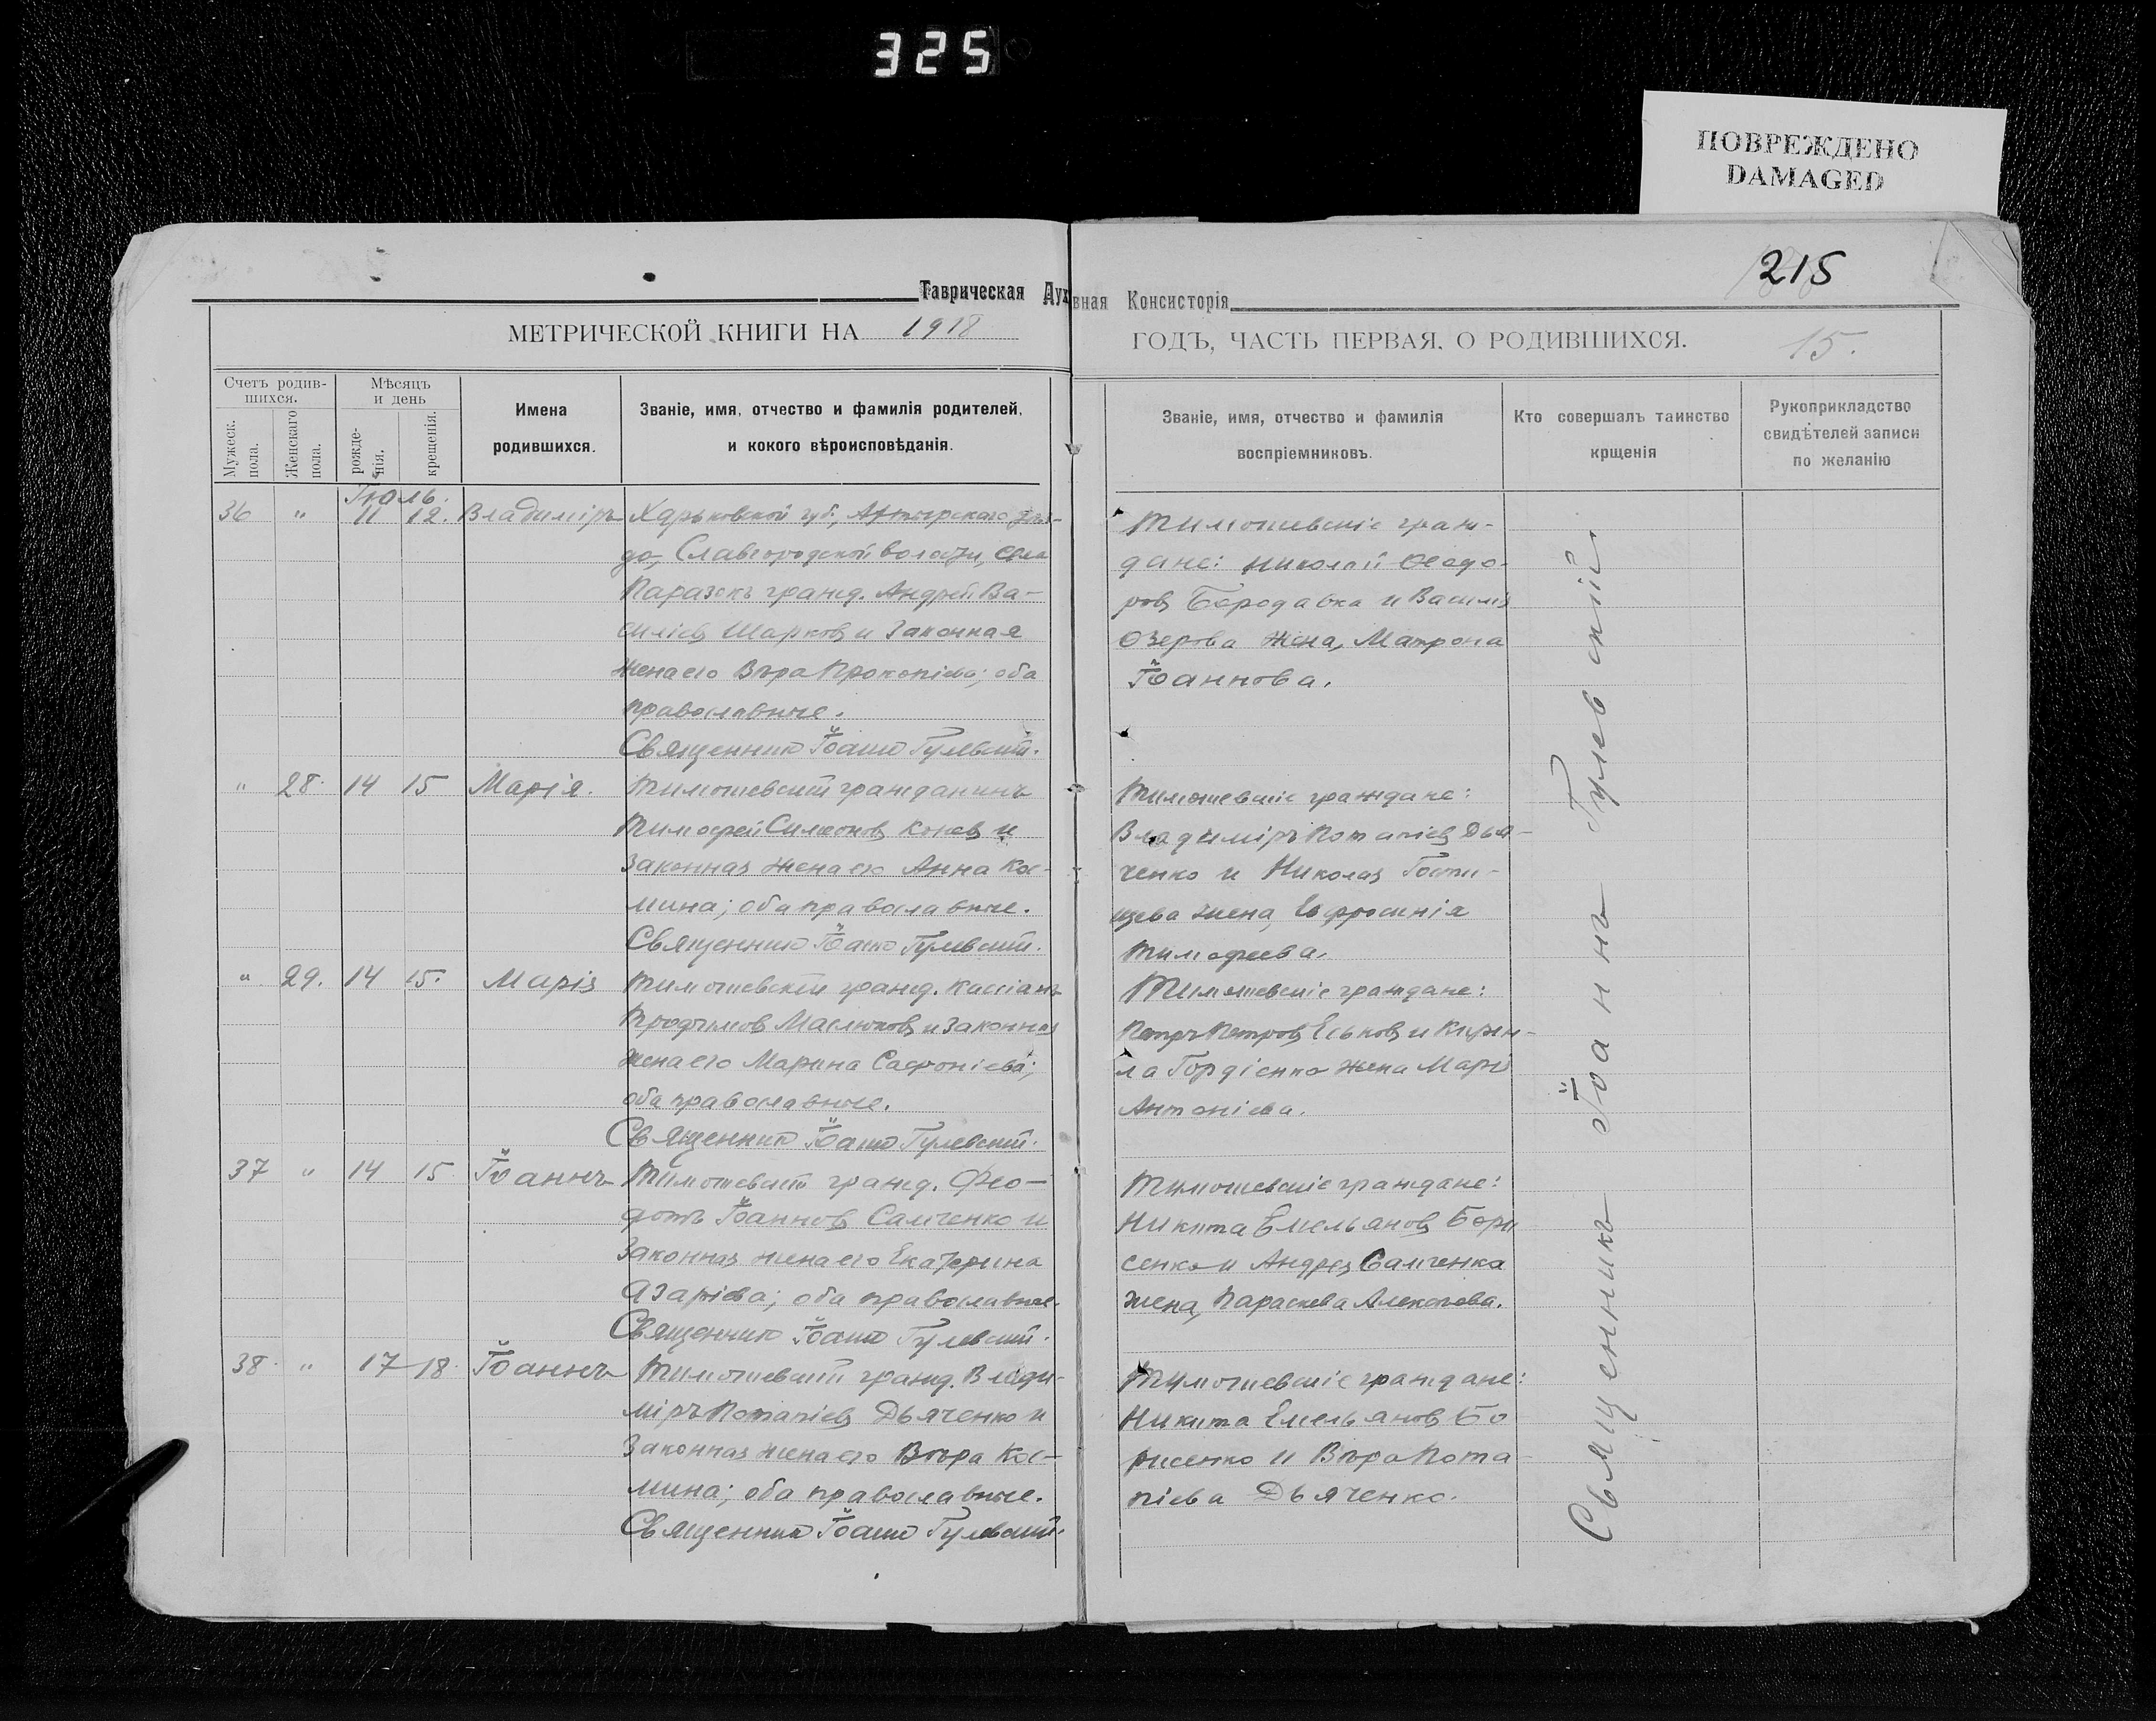 325
ПОВРЕЖДЕНО
DAMAGED
215
Таврическая Духовная Консисторія
МЕТРИЧЕСКОЙ КНИГИ НА 1918
ГОДЪ, ЧАСТЬ ПЕРВАЯ, О РОДИВШИХСЯ.
15.
Счетъ родив-
шихся.
Мужеск.
пола.
Женскаго
пола.
Мѣсяцъ
и день
рожде-
нія.
крещенія.
Имена
родившихся.
Званіе, имя, отчество и фамилія родителей,
и кокого вѣроисповѣданія.
Званіе, имя, отчество и фамилія
воспріемниковъ.
Кто совершалъ таинство
крщенія
Рукоприкладство
свидѣтелей записи
по желанію
Іюль.
36 " 11 12. Владиміръ Харьковской губ., Ахтырскаго уѣз-
да, Славгородской волости, села
гражд. Андрей Ва-
силіев Шарков и законная
жена его Вѣра Прокопіева; оба
православные.
Священник Іоанн Гулевскій.
Тимошевскіе граж-
дане: Николай Ѳеодо-
ров Бородавка и Василія
Озерова жена, Матрона
Іоаннова.
" 28. 14 15 Марія. Тимошевскій гражданинъ
Тимофей Симеонов Конев и
законная жена его Анна Кос-
мина; оба православные.
Священник Іоанн Гулевскій.
Тимошевскіе граждане:
Владиміръ Потапіев Дья-
ченко и Николая
жена, Евфросинія
Тимофеева.
" 29. 14 15. Марія Тимошевскій гражд. Кассіанъ
Трофимов Маслюков и законная
жена его Марина Сафоніева;
оба православные.
Священник Іоанн Гулевскій.
Тимошевскіе граждане:
Петръ Петров Еськов и Кирил-
ла Гордіенко жена Марія
Антоніева.
37 " 14 15 Іоаннъ Тимошевскій гражд. Фео-
дотъ Іоаннов Самченко и
законная жена его Екатерина
Азаріева; оба православные.
Священник Іоанн Гулевскій.
Тимошевскіе граждане:
Никита Емельянов Бори
сенко и Андрея Самченка
жена, Параскева Алексіева.
38 " 17 18. Іоаннъ Тимошевскій гражд. Влади-
міръ Потапіев Дьяченко и
законная жена его Вѣра Кос-
мина; оба православные.
Священник Іоанн Гулевскій.
Тимошевскіе граждане:
Никита Емельянов Бо
рисенко и Вѣра Пота-
піева Дьяченко.
Священникъ Іоаннъ Гулевскій.